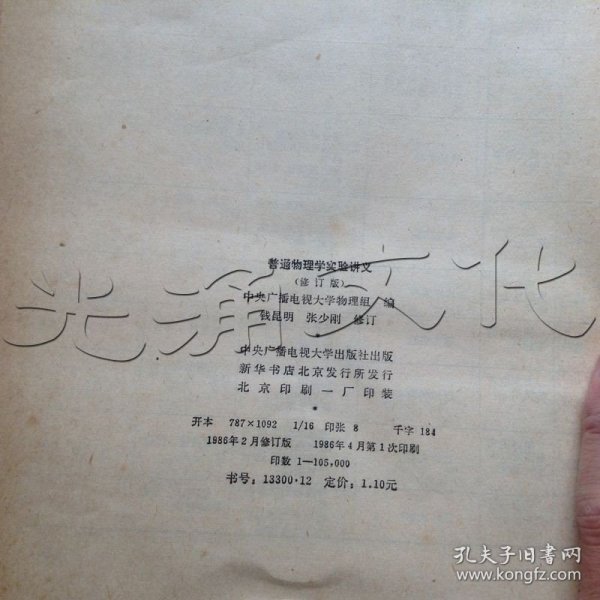 普通物理学实验讲义
(修订版)
中央广播电视大学物理组 编
钱昆明 张少刚 修订
中央广播电视大学出版社出版
新华书店北京发行所发行
北京印刷一厂印装
开本 787×1092 1/16 印张 8 千字 184
1986年2月修订版 1986年4月第1次印刷
印数 1—105,000
书号：13300·12 定价：1.10元
光涌文化
孔夫子旧书网
www.kongfz.com